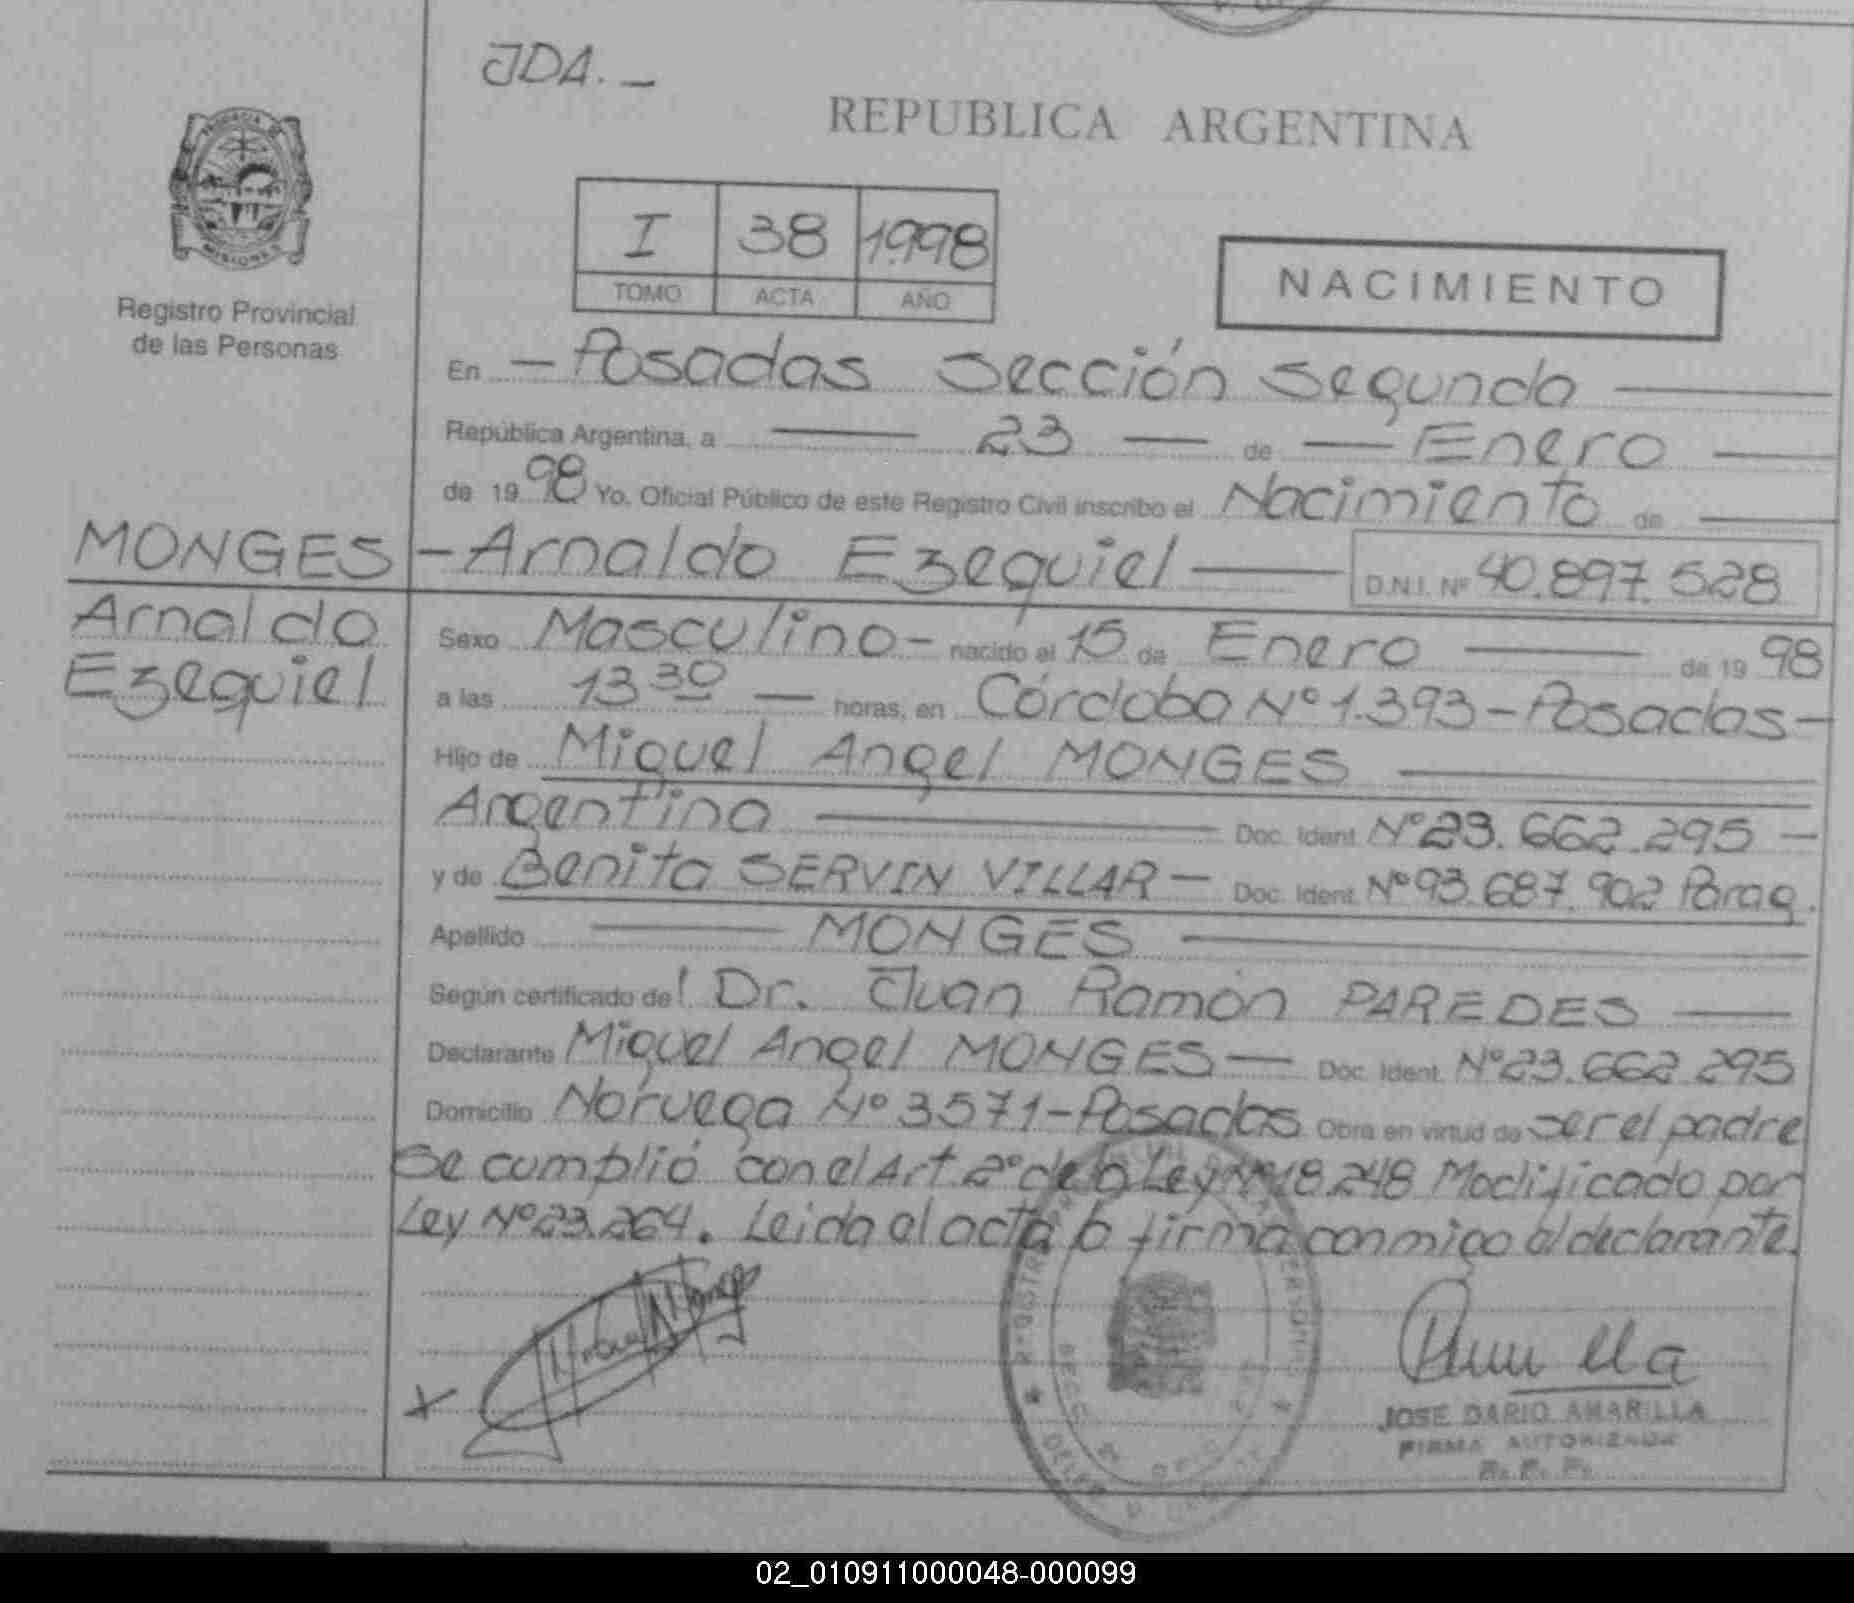 JDA. _
REPUBLICA ARGENTINA
I 38 1998
TOMO ACTA AÑO
NACIMIENTO
Registro Provincial
de las Personas
En - Posadas Sección Segunda
República Argentina, a 23 de Enero
de 1998 Yo, Oficial Público de este Registro Civil inscribo el Nacimiento de
MONGES - Arnaldo Ezequiel D.N.I. Nº 40.897.528
Arnaldo
Ezequiel
Sexo Masculino - nacido el 15 de Enero de 1998
a las 13 30 horas, en Córdoba Nº 1.393 - Posadas -
Hijo de Miguel Angel MONGES
Argentino Doc. Ident. Nº 23.662.295 -
y de Benita SERVIN VILLAR - Doc. Ident. Nº 93.687.902 Parag.
Apellido MONGES
Según certificado del Dr. Juan Ramón PAREDES
Declarante Miguel Angel MONGES - Doc. Ident. Nº 23.662.295
Domicilio Noruega Nº 3571 - Posadas Obra en virtud de ser el padre
Se cumplió con el Art. 2º de la Ley Nº 18.248 Modificado por
Ley Nº 23.264. Leida el acta la firma conmigo el declarante.
JOSE DARIO AMARILLA
FIRMA AUTORIZADA
R. P. P.
02_010911000048-000099